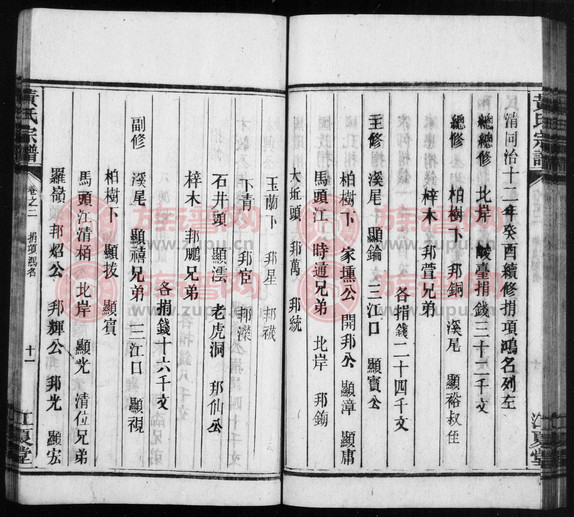 清同治十二年癸酉續修捐項鴻名列左
總總修 北岸 畯臺捐錢三十二千文
總修 柏樹下 邦銅 溪尾 顯裕叔侄
梓木 邦萱兄弟
各捐錢二十四千文
主修 溪尾 顯鑰 三江口 顯寶公
柏樹下 家壎公 開邦公 顯漳 顯庸
馬頭江 時適兄弟 北岸 邦鋤
大坵頭 邦萬 邦統
玉蘭下 邦星 邦禩
下青 邦宦 邦
石井頭 顯澐 老虎洞 邦仙公
梓木 邦鵬兄弟
各捐錢十六千文
副修 溪尾 顯禧兄弟 三江口 顯視
柏樹下 顯拔 顯賓
馬頭江清楨 北岸 顯光 清位兄弟
羅嶺 邦炤公 邦輝公 邦光 顯宏
黃氏宗譜
卷之二 捐項題名
十一
江夏堂
黃氏宗譜
江夏堂
族譜网
族譜网